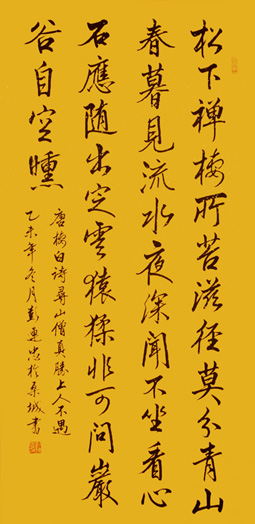 松下禅棲所苔滋径莫分青山
春暮見流水夜深聞不坐看心
石應随出定雲猿猱非可問巖
谷自空曛
唐棲白诗尋山僧真勝上人不遇
乙未年冬月彭忠於城書